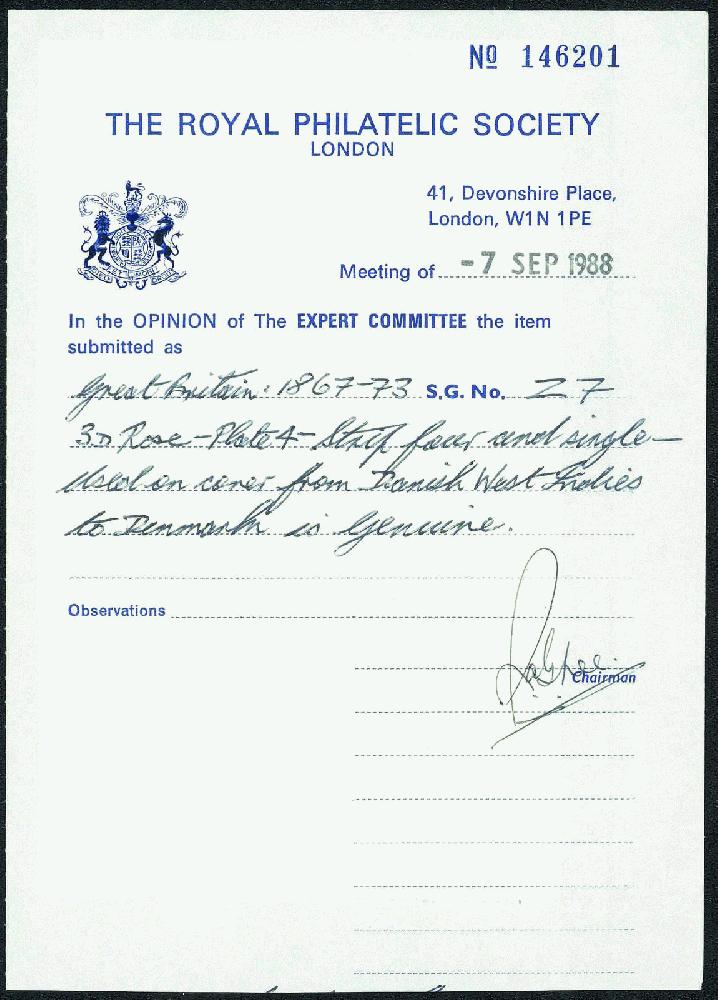 Nº 146201
THE ROYAL PHILATELIC SOCIETY
LONDON
41, Devonshire Place,
London, W1N 1PE
Meeting of -7 SEP 1988
In the OPINION of The EXPERT COMMITTEE the item
submitted as
Great Britain: 1867-73 S.G. No. Z7
3d Rose - Plate 4 - Strip four and single -
Used on cover from Danish West Indies
to Denmark is Genuine.
Observations
Chairman